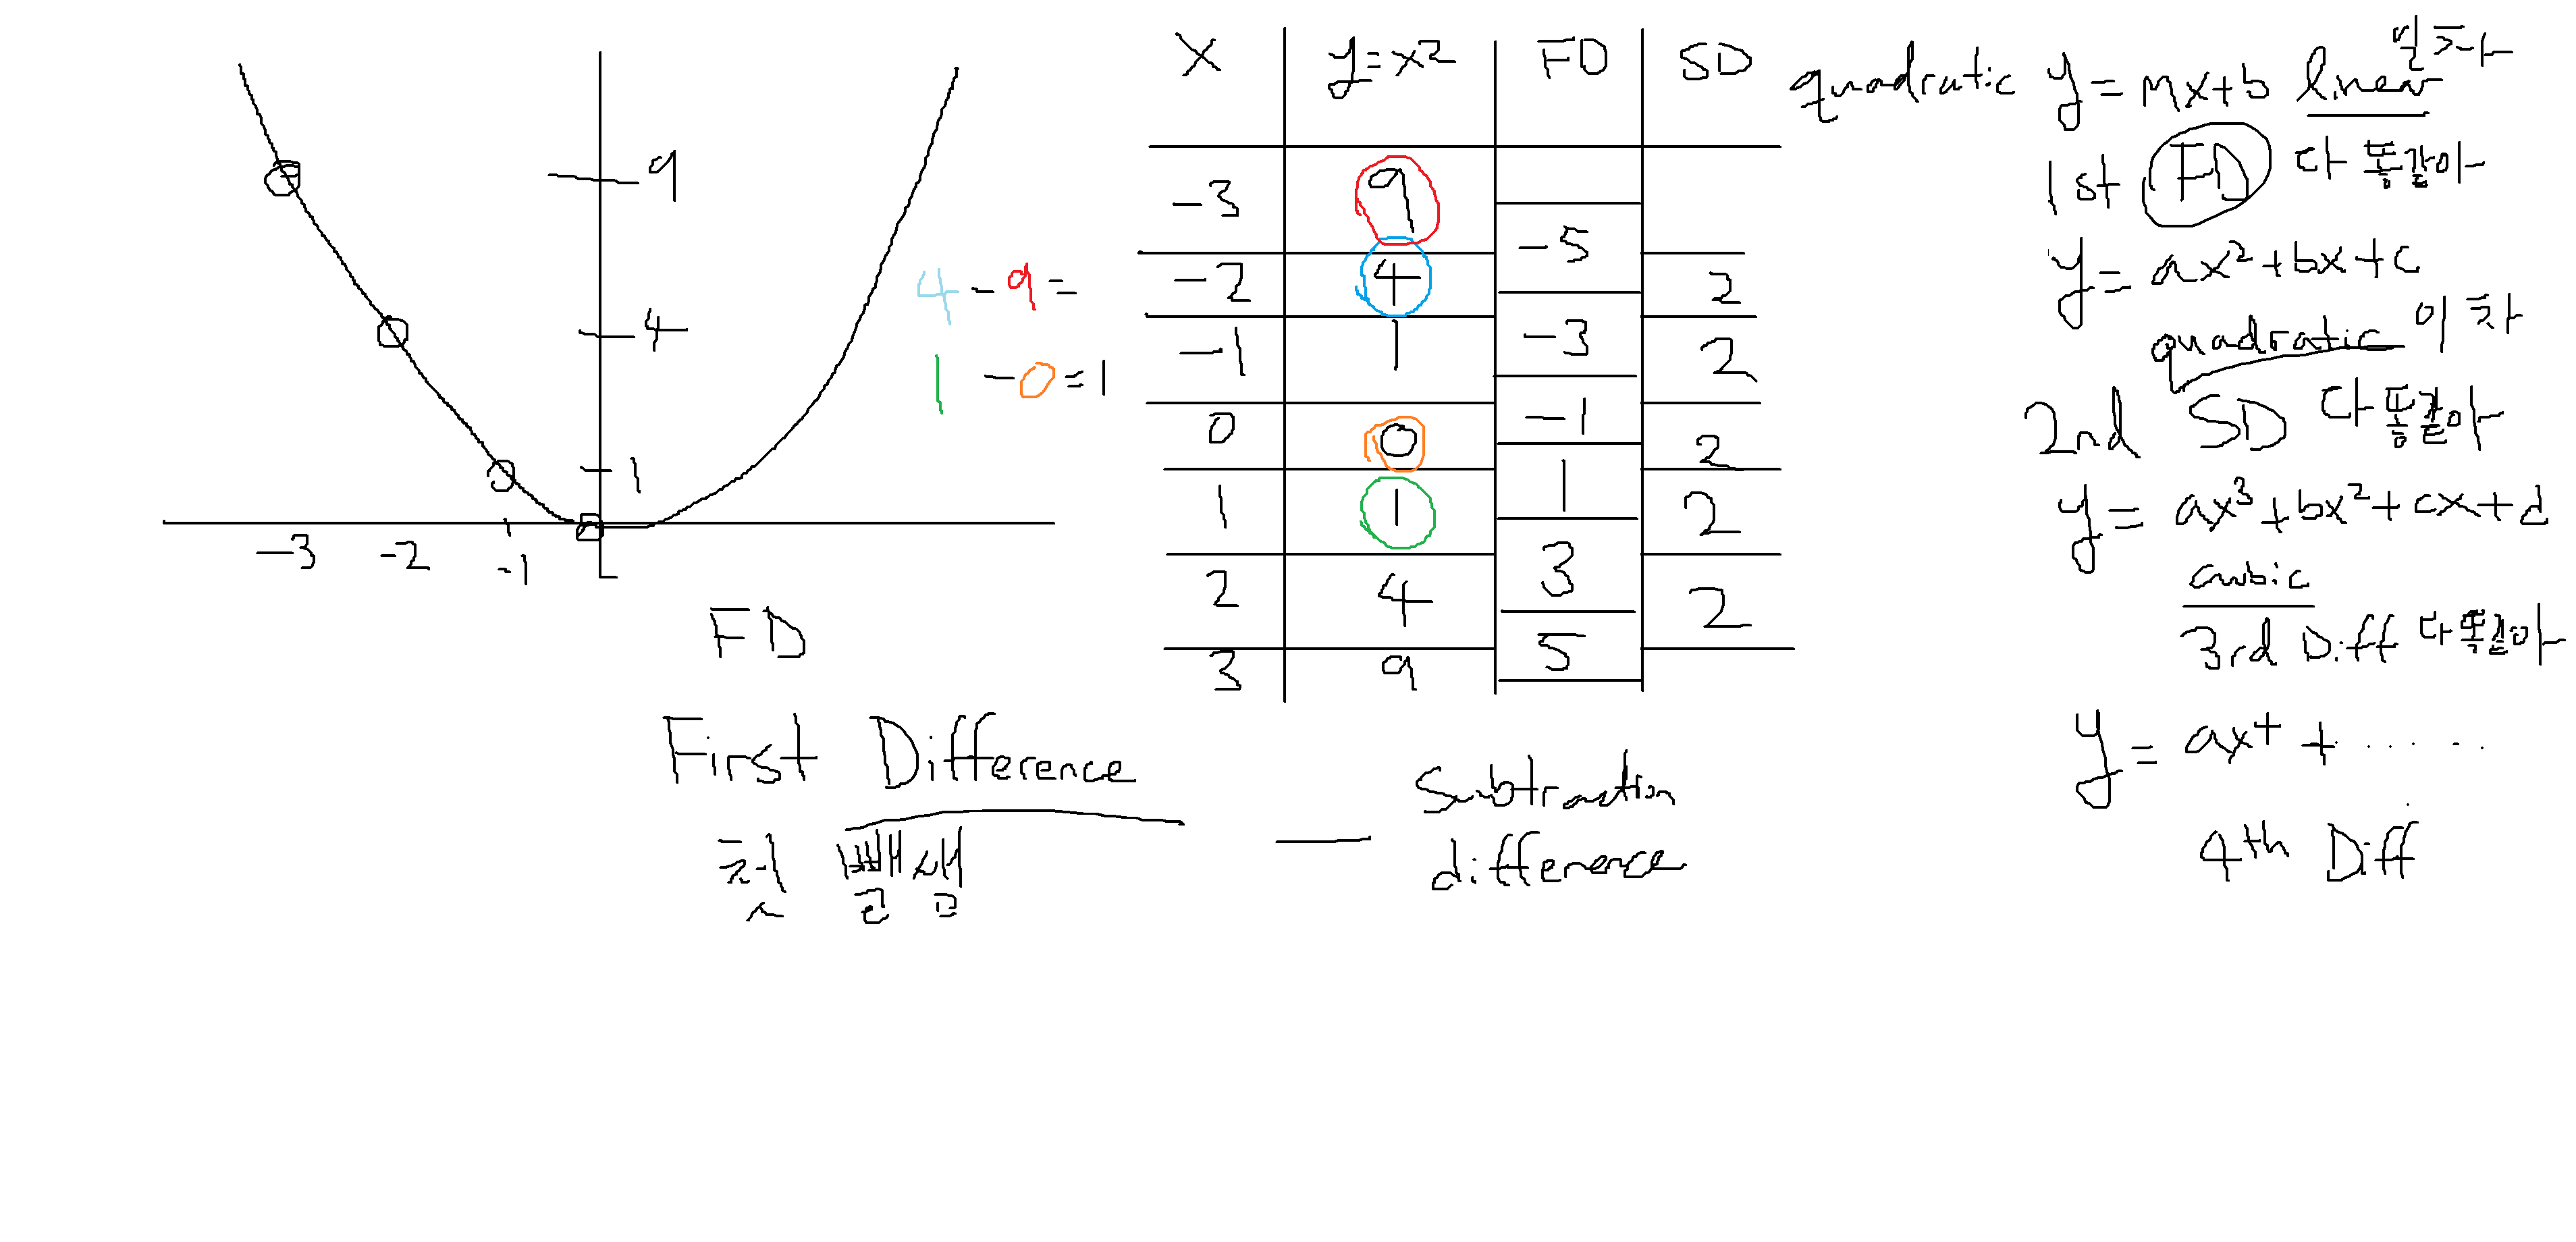 9
4
1
-3 -2 -1
4 - 9 =
1 - 0 = 1
X y=x² FD SD
-3 9
-5
-2 4 2
-3
-1 1 2
-1
0 0 2
1
1 1 2
3
2 4 2
5
3 9
FD
First Difference
첫 뺄셈
— Subtraction
difference
quadratic y = mx+b linear 일차
1st FD 다 똑같아
y = ax²+bx+c
quadratic 이차
2nd SD 다 똑같아
y = ax³+bx²+cx+d
cubic
3rd Diff 다 똑같아
y = ax⁴ + ......
4th Diff